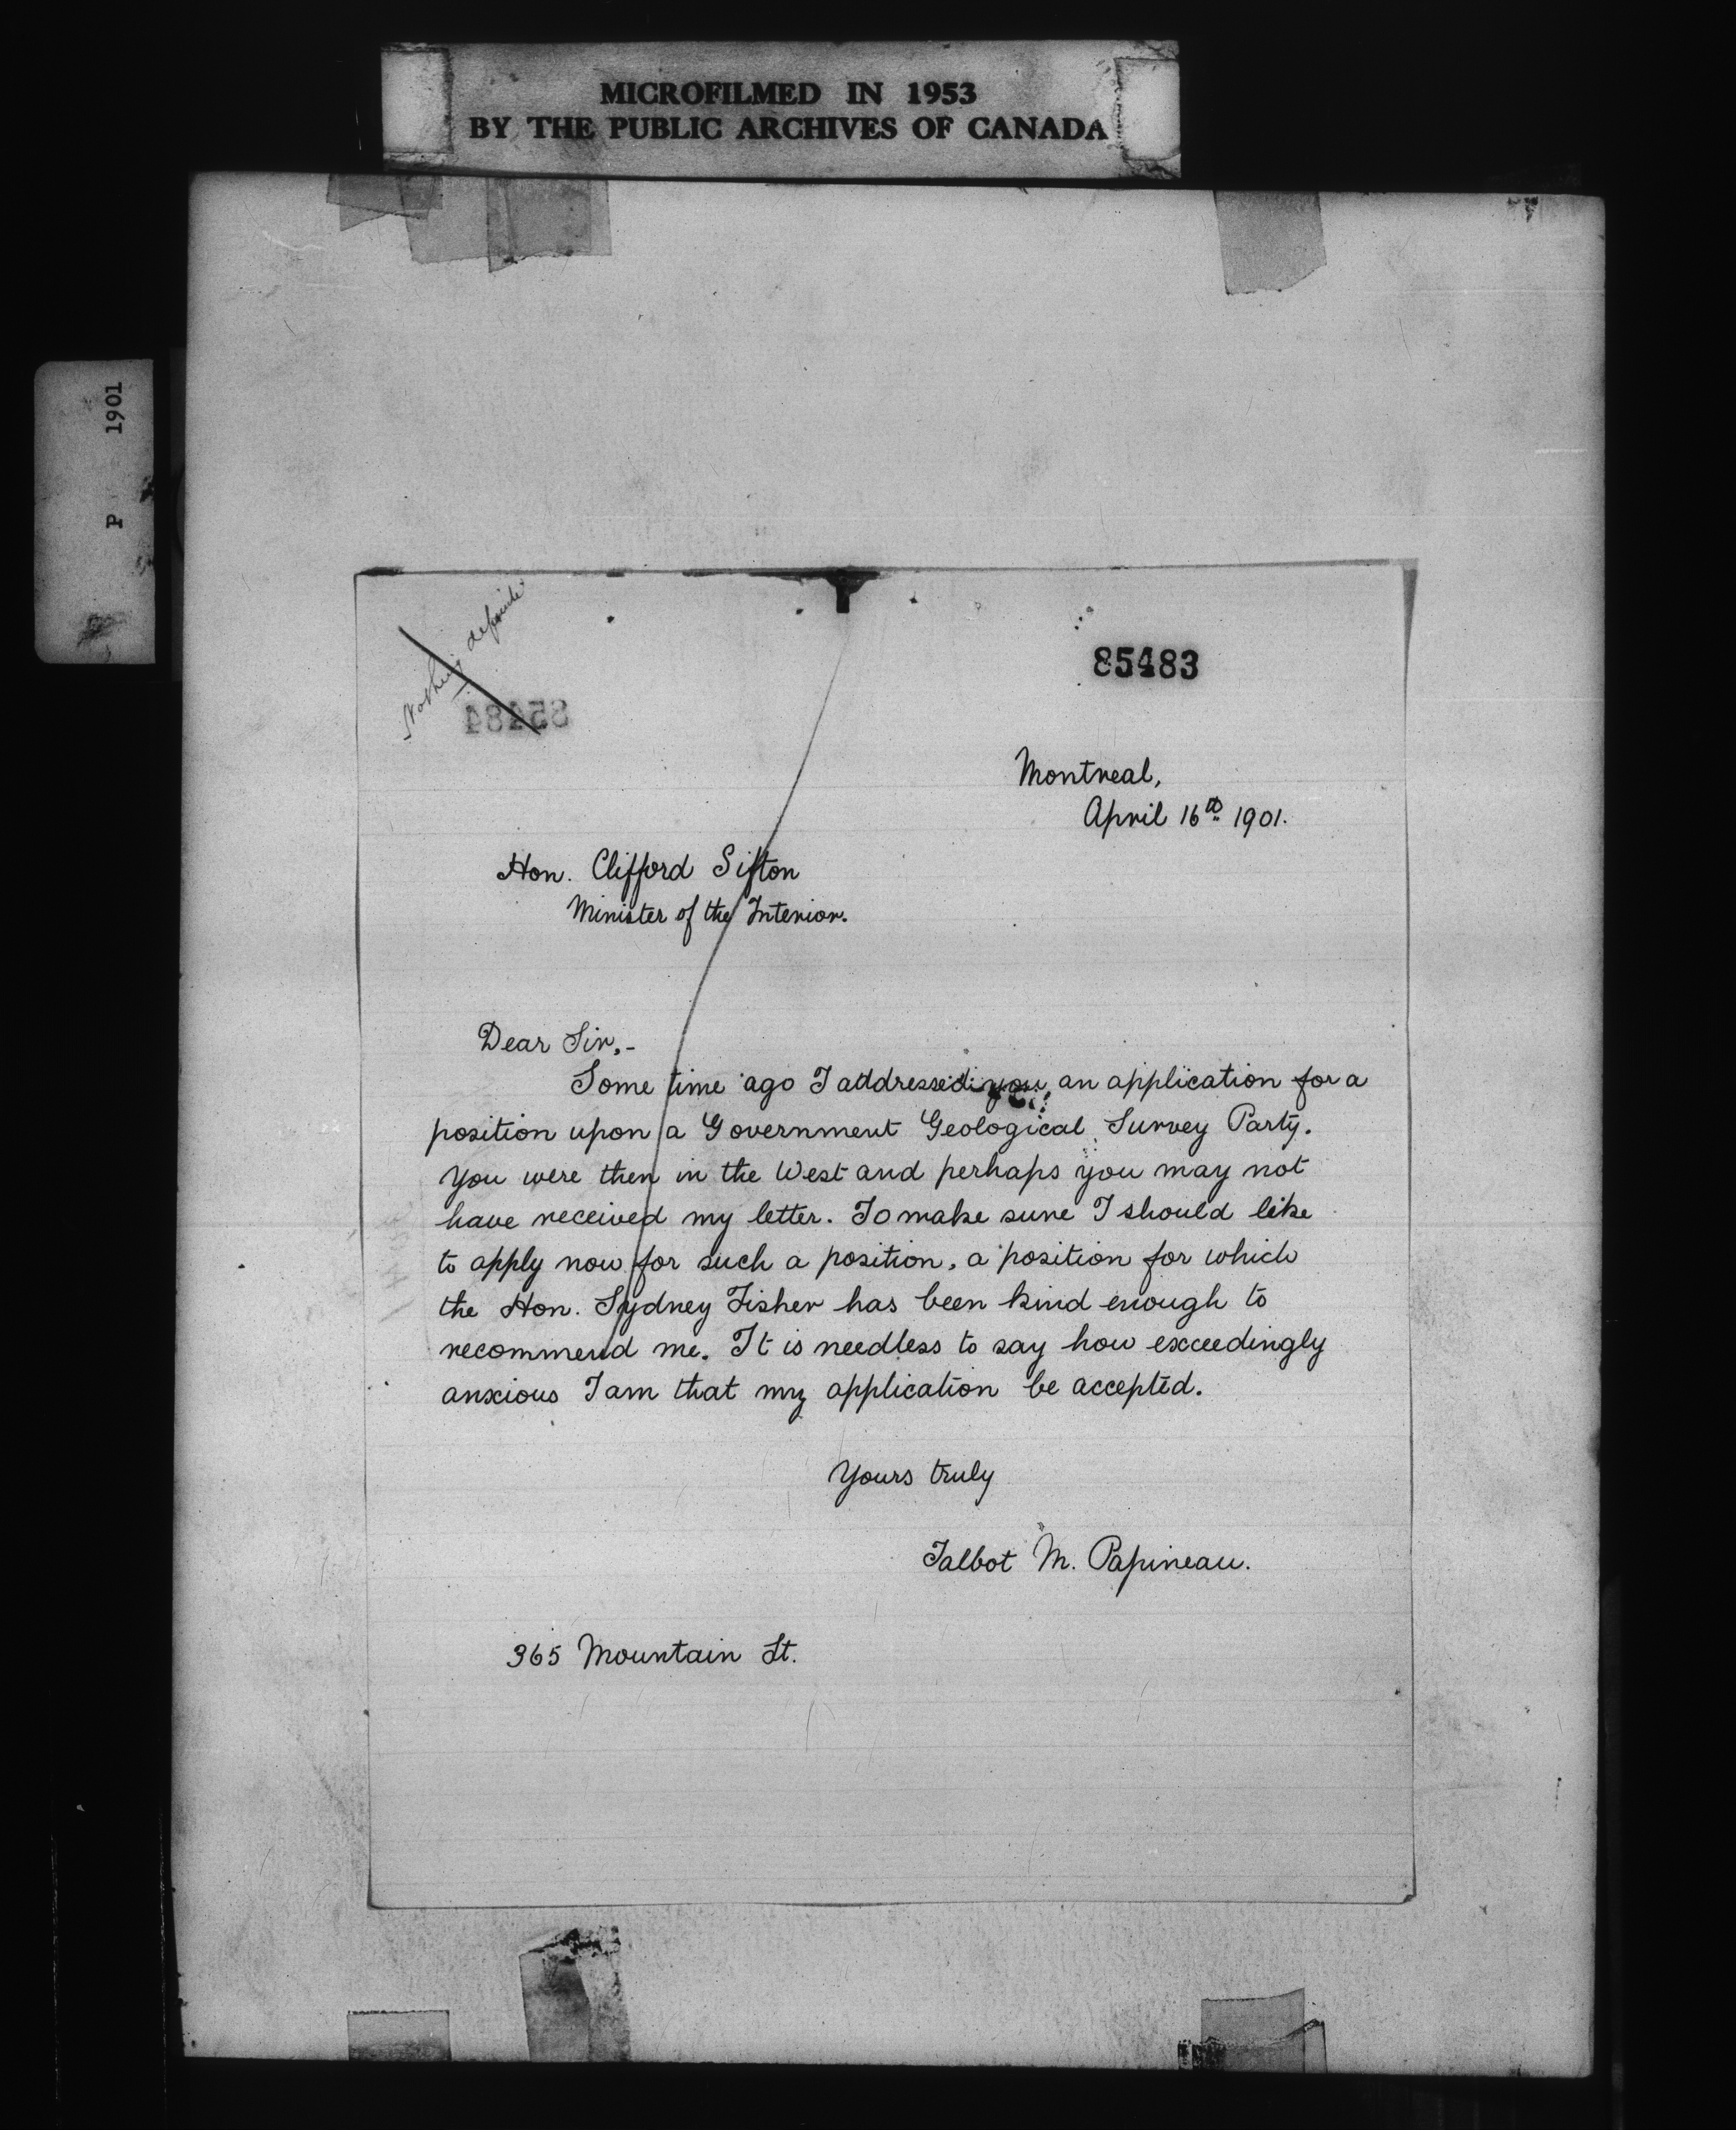 MICROFILMED IN 1953
BY THE PUBLIC ARCHIVES OF CANADA
P 1901
Nothing definite
85483
85484
Montreal,
April 16th 1901.
Hon. Clifford Sifton
Minister of the Interior.
Dear Sir,-
Some time ago I addressed you an application for a
position upon a Government Geological Survey Party.
You were then in the West and perhaps you may not
have received my letter. To make sure I should like
to apply now for such a position, a position for which
the Hon. Sydney Fisher has been kind enough to
recommend me. It is needless to say how exceedingly
anxious I am that my application be accepted.
Yours truly
Talbot M. Papineau.
365 Mountain St.